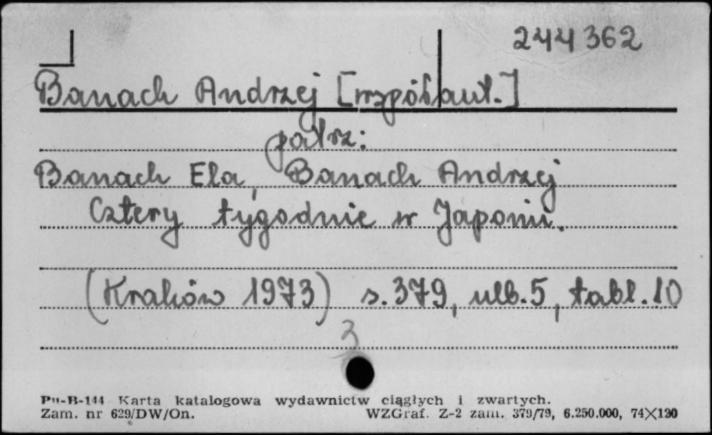 244362
Banach Andrzej [współaut.]
patrz:
Banach Ela, Banach Andrzej
Cztery tygodnie w Japonii.
(Kraków 1973) s. 379, ulb. 5, tabl. 10
3
Pu-B-144 Karta katalogowa wydawnictw ciągłych i zwartych.
Zam. nr 629/DW/On. WZGraf. Z-2 zam. 379/79, 6.250.000, 74×120